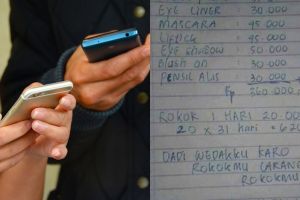 EYE LINER : 30.000
MASCARA : 45.000
LIPTICK : 45.000
EYE SHADOW : 50.000
Blush on : 30.000
PENSIL ALIS : 30.000
Rp 360.000
ROKOK 1 HARI 20.000
20 x 31 hari = 62
DADI WEDAKKU KARO
ROKOKMU LARANG
ROKOKMU